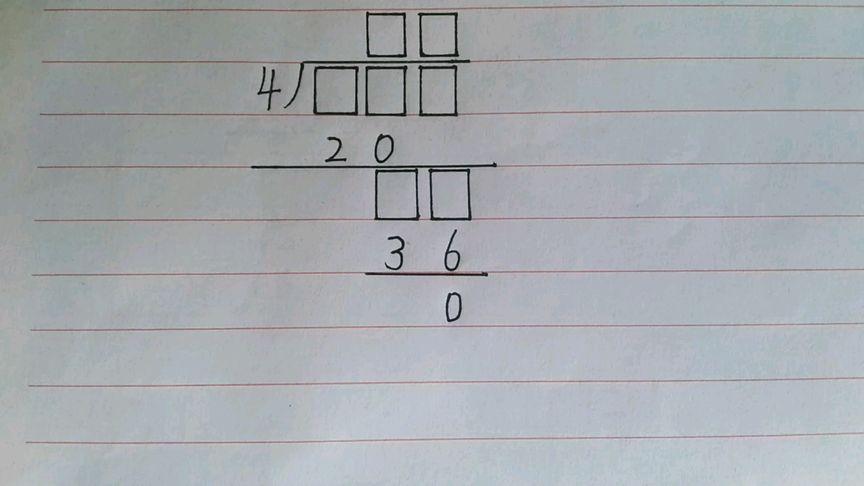 □□
4)□□□
20
□□
36
0